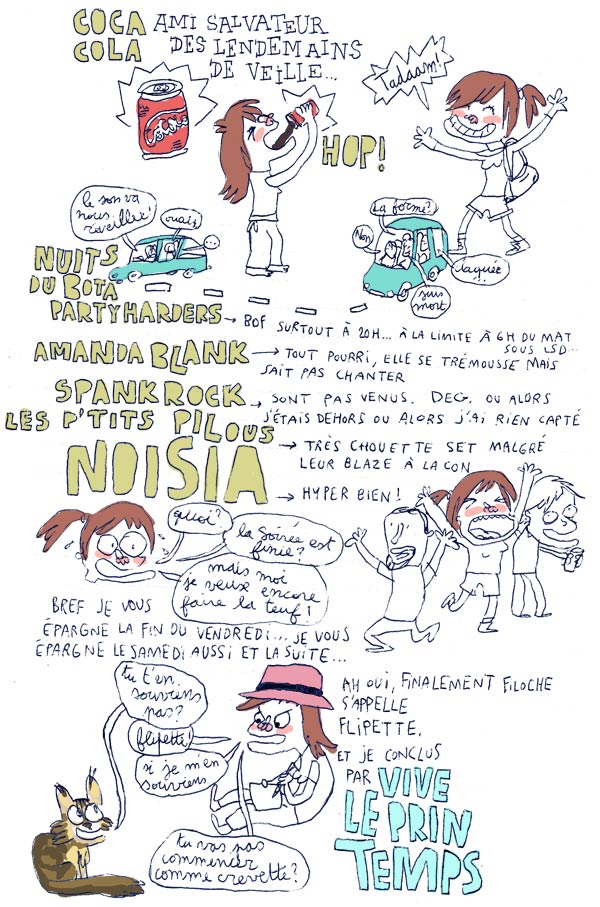 COCA COLA
AMI SALVATEUR
DES LENDEMAINS
DE VEILLE...
Tadaaam!
HOP!
le son va
nous
réveiller!
ouais
...
la forme?
Non
suis
mort
NUITS
DU BOTA
PARTYHARDERS → BOF SURTOUT À 20H... À LA LIMITE À 6H DU MAT
SOUS LSD...
AMANDA BLANK → TOUT POURRI, ELLE SE TRÉMOUSSE MAIS
SAIT PAS CHANTER
SPANKROCK → SONT PAS VENUS. DEG. OU ALORS
J'ÉTAIS DEHORS OU ALORS J'AI RIEN CAPTÉ
LES P'TITS PILOUS → TRÈS CHOUETTE SET MALGRÉ
LEUR BLAZE À LA CON
NOISIA → HYPER BIEN!
quoi?
la soirée est
finie?
mais moi
je veux encore
faire la teuf!
BREF JE VOUS
ÉPARGNE LA FIN DU VENDREDI... JE VOUS
ÉPARGNE LE SAMEDI AUSSI ET LA SUITE...
tu t'en
souviens
pas?
flipette!
si je m'en
souviens
tu vas pas
commencer
comme crevette?
AH OUI, FINALEMENT FILOCHE
S'APPELLE
FLIPETTE.
ET JE CONCLUS
PAR VIVE
LE PRIN
TEMPS